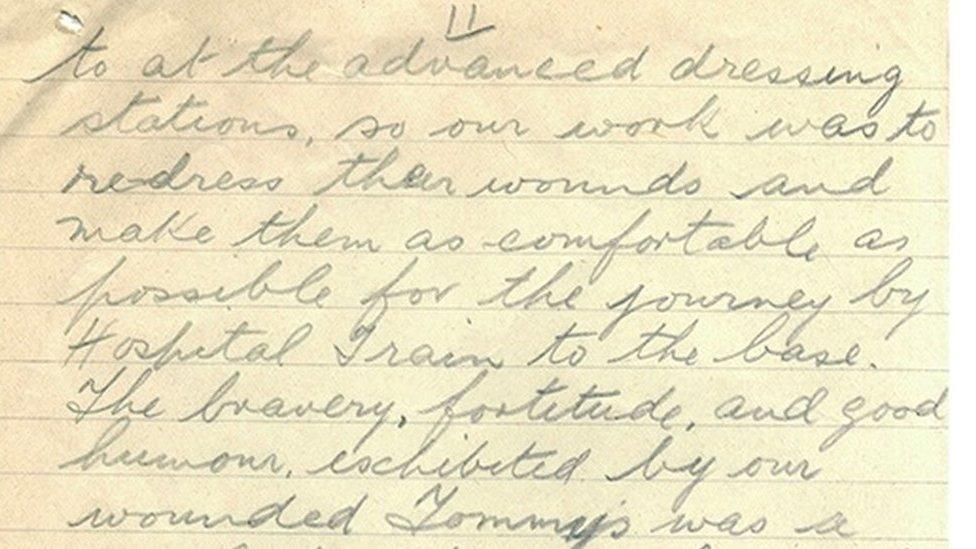 11
to at the advanced dressing
stations, so our work was to
re-dress their wounds and
make them as comfortable as
possible for the journey by
Hospital Train to the base.
The bravery, fortitude, and good
humour, exhibited by our
wounded Tommys was a